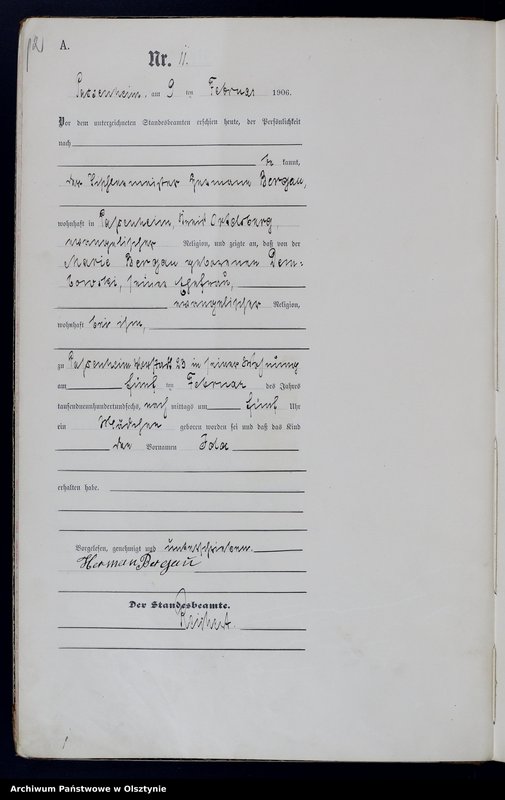 12
A.
Nr. 11.
Passenheim, am 9 ten Februar 1906.
Vor dem unterzeichneten Standesbeamten erschien heute, der Persönlichkeit
nach
be kannt,
der Tischlermeister Hermann Bergau,
wohnhaft in Passenheim, Kreis Ortelsburg,
evangelischer Religion, und zeigte an, daß von der
Marie Bergau geborenen Dem-
bowski, seiner Ehefrau,
evangelischer Religion,
wohnhaft bei ihm,
zu Passenheim 23 in seiner Wohnung
am fünf ten Februar des Jahres
tausendneunhundertundsechs, nach mittags um fünf Uhr
ein Mädchen geboren worden sei und daß das Kind
den Vornamen Ida
erhalten habe.
Vorgelesen, genehmigt und unterschrieben.
Herman Bergau
Der Standesbeamte.
Archiwum Państwowe w Olsztynie